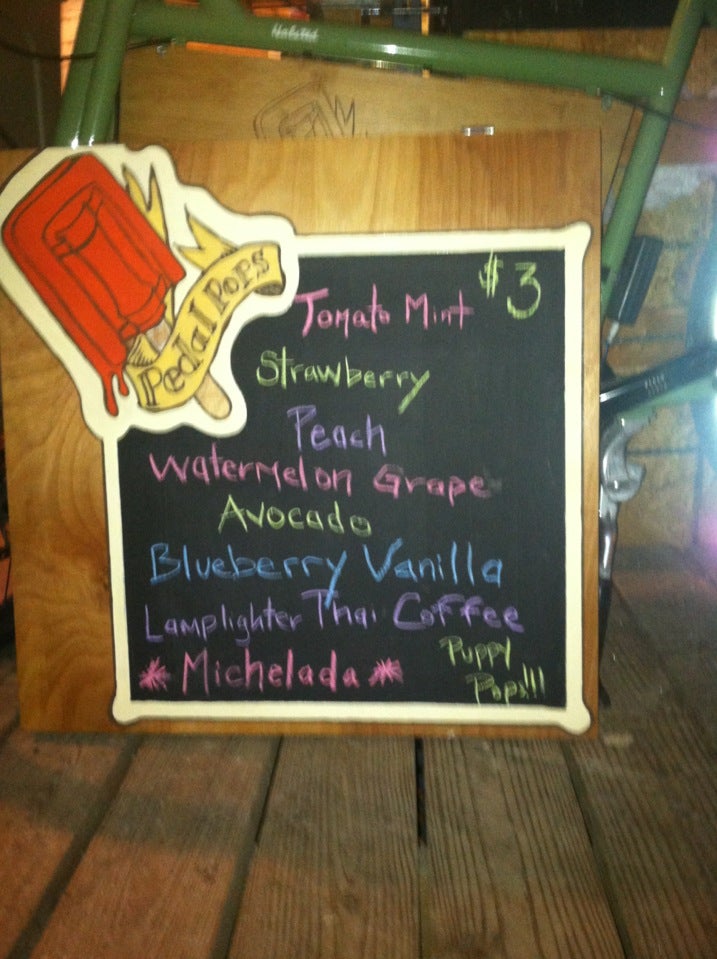 Pedal Pops
$3
Tomato Mint
Strawberry
Peach
Watermelon Grape
Avocado
Blueberry Vanilla
Lamplighter Thai Coffee
*Michelada*
Puppy
Pops!!!